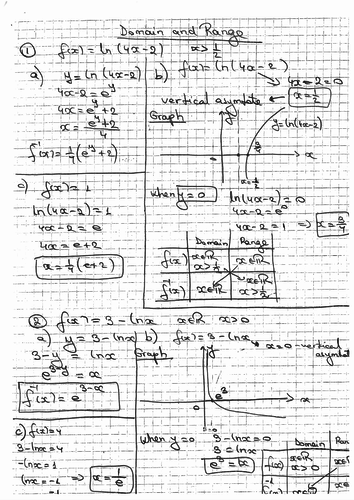 Domain and Range
① f(x) = ln(4x-2) x>1/2
a) y = ln(4x-2)
4x-2 = e^y
4x = e^y+2
x = (e^y+2)/4
f^-1(x) = 1/4(e^y+2)
b) f(x) = ln(4x-2)
4x-2=0
vertical asymptote ← x=1/2
Graph
y
y=ln(4x-2)
0
3/4
x
x=1/2
when y=0
ln(4x-2)=0
4x-2=e^0
4x-2=1 ⇒ x=3/4
Domain Range
f(x) x∈ℝ x>1/2 x∈ℝ
f^-1(x) x∈ℝ x∈ℝ x>1/2
c) f(x)=1
ln(4x-2)=1
4x-2=e
4x=e+2
x=1/4(e+2)
② f(x) = 3-lnx x∈ℝ x>0
a) y = 3-lnx
3-y = lnx
e^3-y = x
f^-1(x) = e^3-x
b) f(x)=3-lnx
x=0-vertical
asymptot
Graph
y
e^3
0
x
c) f(x)=4
3-lnx=4
-lnx=1
lnx=-1 ⇒ x=1/e
when y=0
3-lnx=0
3=lnx
e^3=x
Domain Ran
f(x) x∈ℝ x>0 x∈
f^-1